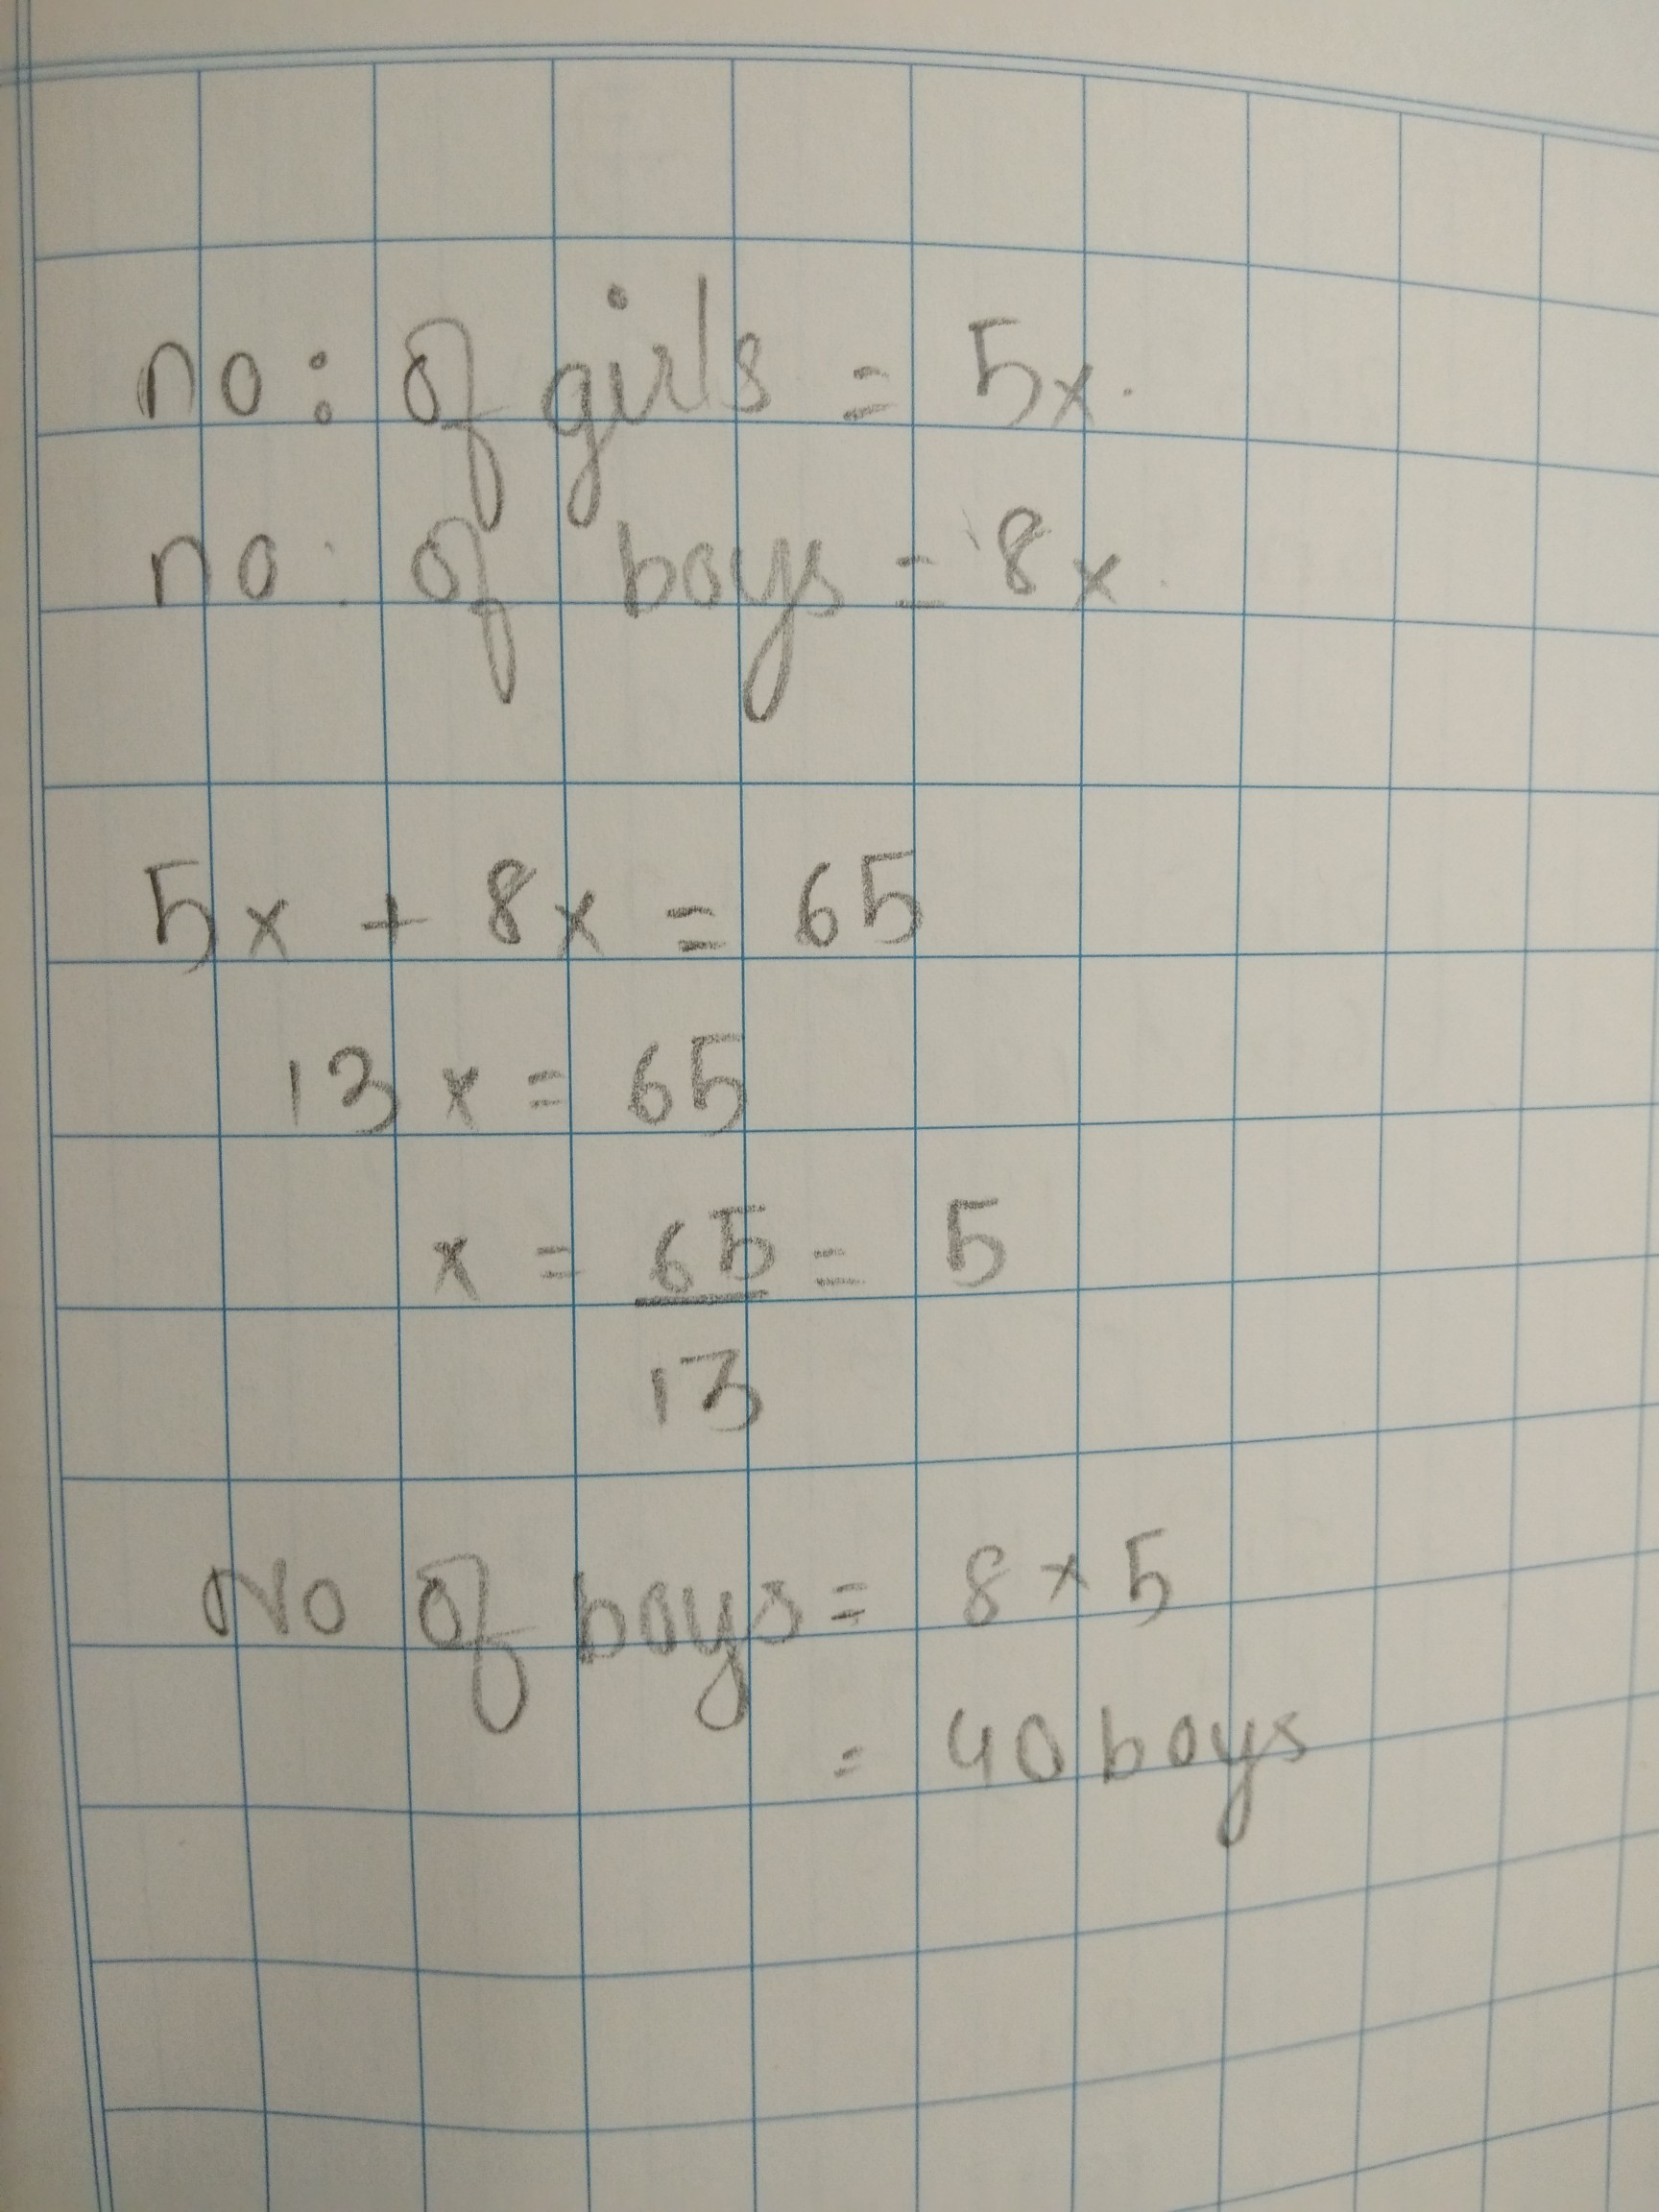 no: of girls = 5x.
no: of boys = 8x.
5x + 8x = 65
13x = 65
x = 65/13 = 5
No of boys = 8 × 5
= 40 boys